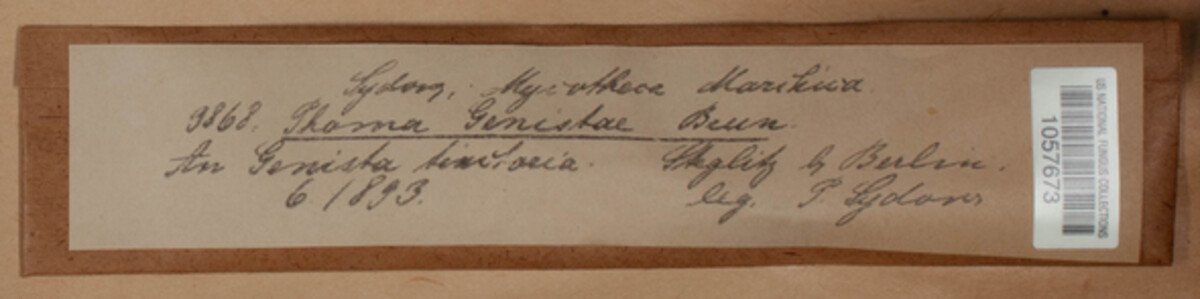 Sydow, Mycotheca Marchica.
3868. Phoma Genistae Brun.
An Genista tinctoria. Stglitz b Berlin.
6 1893. leg. P. Sydow
US NATIONAL FUNGUS COLLECTIONS
1057673